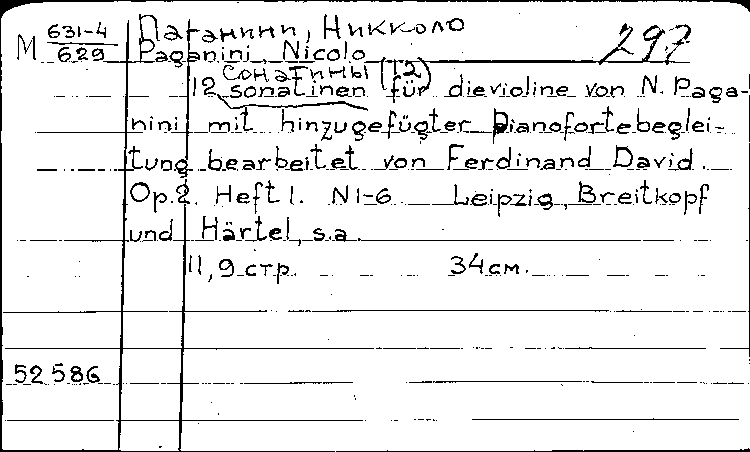 М 631-4/629 Паганини, Никколо
Paganini, Nicolo 297
Сонатины (12)
12 sonatinen für dievioline von N. Paga-
nini mit hinzugefügter pianofortebeglei-
tung bearbeitet von Ferdinand David.
Op.2. Heft I. N1-6 Leipzig, Breitkopf
und Härtel, s.a.
11, 9 стр. 34 см.
52586